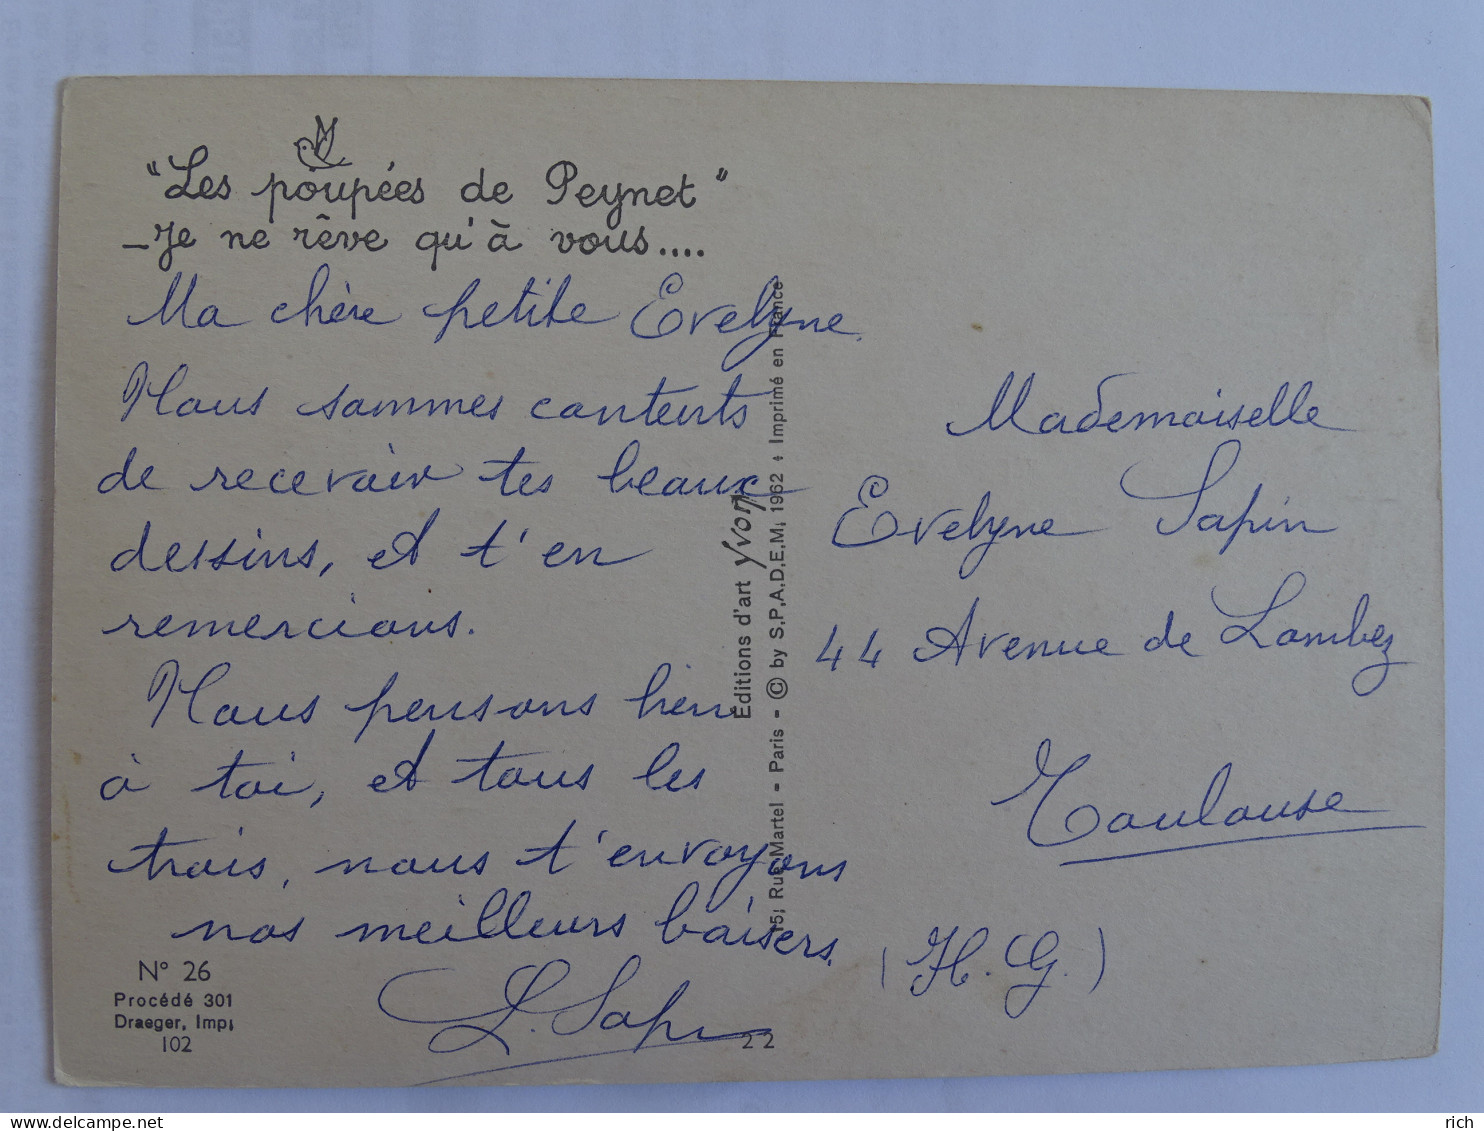 "Les poupées de Peynet"
–Je ne rêve qu'à vous....
Ma chère petite Evelyne,
Nous sommes contents
de recevoir tes beaux
dessins, et t'en
remercions.
Nous pensons bien
à toi, et tous les
trois, nous t'envoyons
nos meilleurs baisers.
L. Sapin
N° 26
Procédé 301
Draeger, Imp.
102
22
Éditions d'art Yvon
15, Rue Martel - Paris - © by S.P.A.D.E.M. 1962 • Imprimé en France
Mademoiselle
Evelyne Sapin
44 Avenue de Lombez
Toulouse
(H.G.)
rich